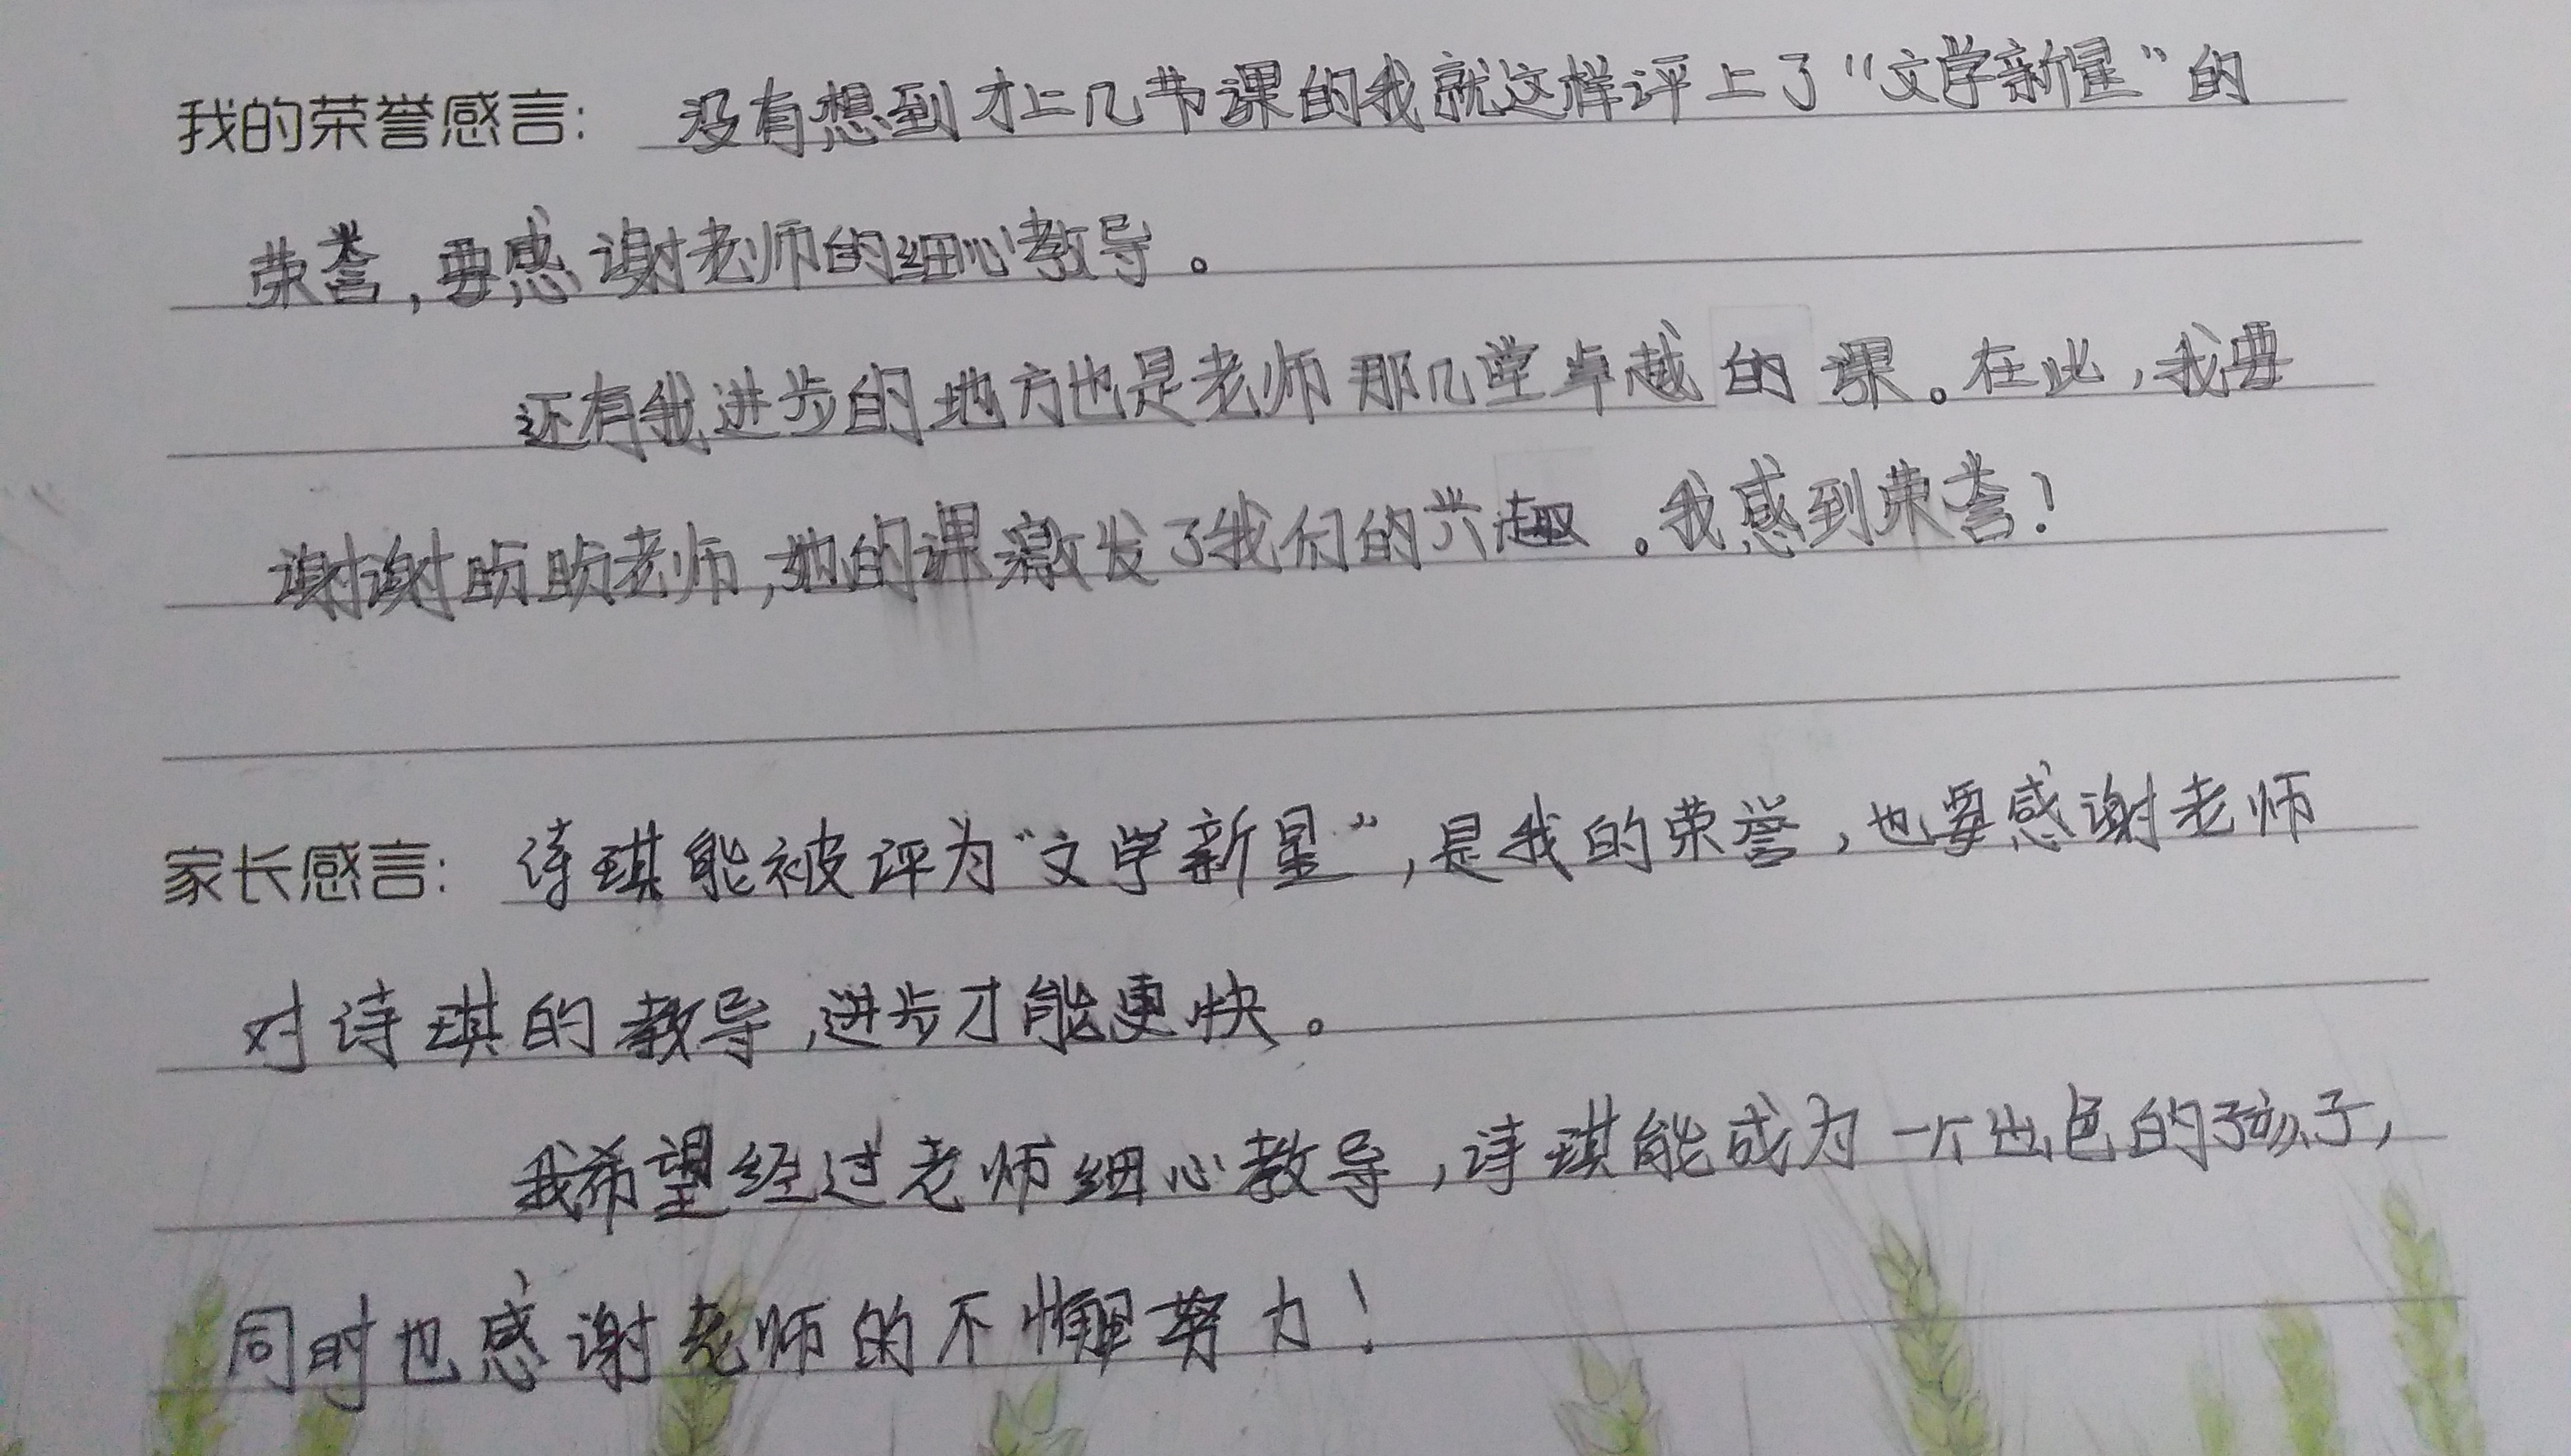 我的荣誉感言: 没有想到才上几节课的我就这样评上了“文学新星”的
荣誉,要感谢老师的细心教导。
还有我进步的地方也是老师那几堂卓越的课。在此,我要
谢谢老师,她的课激发了我们的兴趣。我感到荣誉!
家长感言: 诗琪能被评为“文学新星”,是我的荣誉,也要感谢老师
对诗琪的教导,进步才能更快。
我希望经过老师细心教导,诗琪能成为一个出色的孩子,
同时也感谢老师的不懈努力!